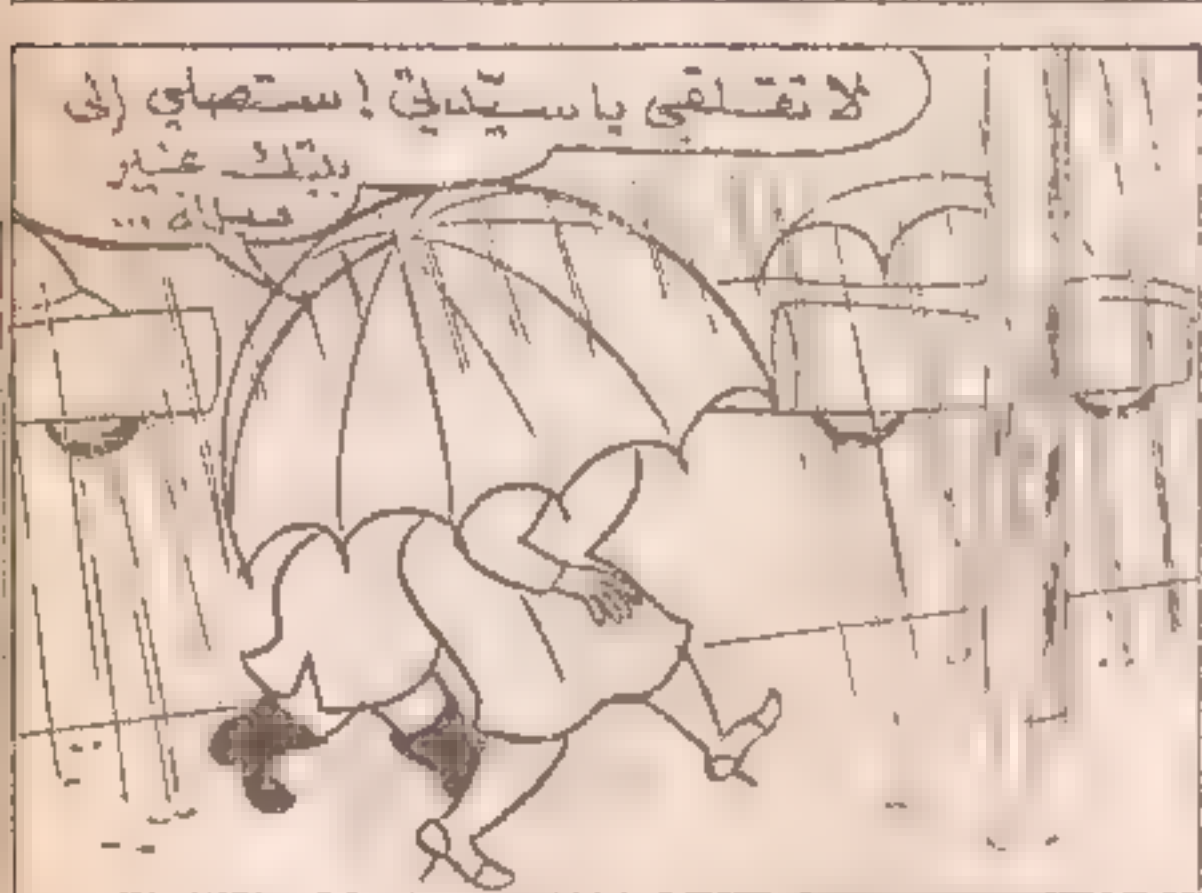 لا تقلقي يا سيدتي ! ستصلي إلى
بيتك غير
مبللة ...